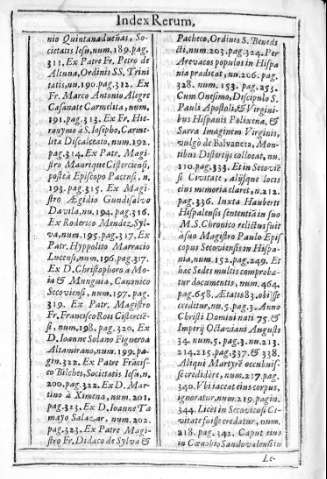 Index Rerum,
nio Quintanadueñas, So-
cietatis Iesu, num. 189. pag.
311. Ex Patre Fr. Petro de
Altuna, Ordinis SS. Trini
tatis, nu. 190. pag. 312. Ex
Fr. Marco Antonio Alegre
Casanate Carmelita, num.
191. pag. 313. Ex Fr. Hie-
ronymo à S. Iosepho, Carme-
lita Discalceato, num. 192.
pag. 314. Ex Patr. Magi-
stro Manrique Cisterciensi,
posteà Episcopo Pacensi, n.
193. pag. 315. Ex Magi-
stro Ægidio Gundisalvo
Davila, nu. 194. pag. 316.
Ex Roderico Mendez Syl-
va, num. 195. pag. 317. Ex
Patr. Hyppolito Marracio
Lucens, num. 196. pag. 317.
Ex D. Christophoro a Mo-
ia & Munguia, Canonico
Secoviensi, num. 197. pag.
319. Ex Patr. Magistro
Fr. Francisco Rois Cistercie-
si, num. 198. pag. 320. Ex
D. Ioanne Solano Figueroa
Altamirano, num. 199. pa-
gin. 322. Ex Patre Francis-
co Bilches, Societatis Iesu, n.
200. pag. 322. Ex D. Mar-
tino à Ximena, num. 201.
pag. 323. Ex D. Ioanne Ta
mayo Salazar, num. 202.
pag. 323. Ex Patr. Magi-
stro Fr. Didaco de Sylva &
Pacheco, Ordinis S. Benedi-
cti, num. 203. pag. 324. Per
Arevacos populos in Hispa
nia praedicat, nu. 206. pag.
328. num. 153. pag. 253.
Cum Onesimo, Discipulo S.
Pauli Apostoli, & Virgini-
bus Hispanis Polixena, &
Sacra Imaginem Virginis,
vulgò de Balvanera, Mon-
tibus Distertijs collocat, nu.
210. pag. 333. Et in Secovie
si Civitate, alijsque locis
eius memoria claret, n. 212.
pag. 336. Iuxta Hauberti
Hispalensis sententia in suo
M.S. Chronico relictus fuit
à suo Magistro Paulo Epis
copus Secoviensis in Hispa-
nia, num. 152. pag. 249. Et
hac Sedes multis comproba-
tur documentis, num. 464.
pag. 658. Ætatis 83. obijsse
creditur, nu. 5. pag. 3. Anno
Christi Domini nati 75. &
Imperij Octaviani Augusti
34. num. 5. pag. 3. nu. 213.
214. 215. pag. 337. & 338.
Aliqui Martyrē occubuis-
se credidēre, num. 217. pag.
340. Vbi iaceat eius corpus,
ignoratur, num. 219. pagin.
344. Licèt in Secoviensi Ci-
vitate fuisse credatur, num.
218. pag. 342. Caput eius
in Cœnobio Sandovalensi in
Le-